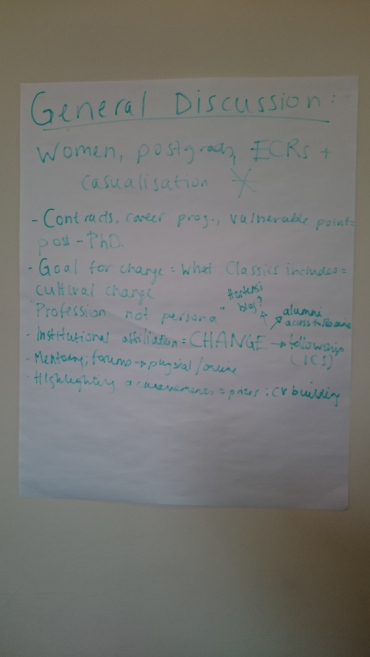 General Discussion:
Women, postgrads, ECRs +
casualisation
- Contracts, career prog., vulnerable point=
post-PhD.
- Goal for change = what Classics includes =
cultural change
"Profession not persona"
blog?
alumni
access to
- Institutional affiliation = CHANGE → fellowship
(ICS)
- Mentoring; forums → physical/online
- Highlighting achievements = prizes; CV building